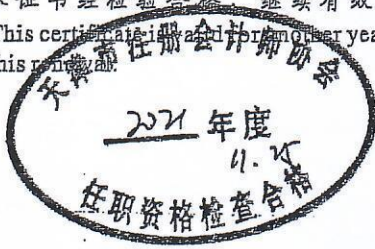 本证书经检验合格，继续有效
This certificate is valid for another year
this renewal.
天津市注册会计师协会
2021 年度
11.25
任职资格检查合格